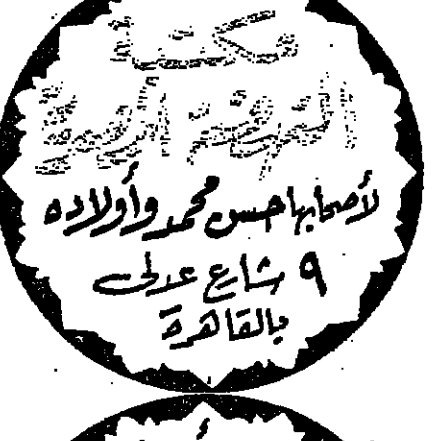 مكتبة
النهضة المصرية
لأصحابها حسن محمد وأولاده
٩ شارع عدلى
بالقاهرة